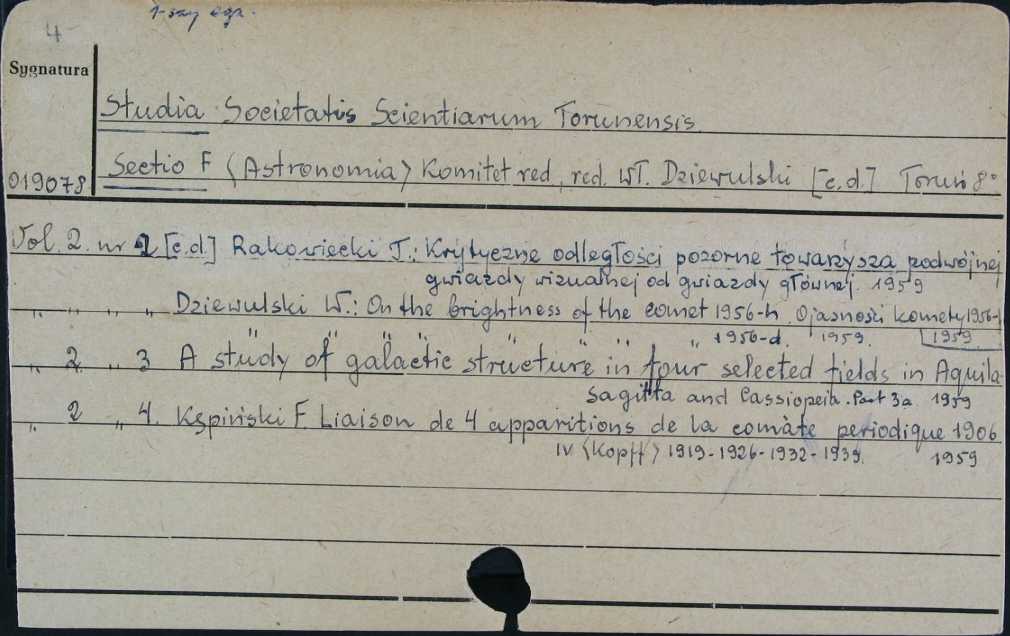 4
1-szy egz.
Sygnatura
Studia Societatis Scientiarum Torunensis
019078 Sectio F (Astronomia) Komitet red, red. Wł. Dziewulski [c.d.] Toruń 8°
Vol. 2. nr 2 [c.d.] Rakowiecki T.: Krytyczne odległości pozorne towarzysza podwójnej
gwiazdy wizualnej od gwiazdy głównej. 1959
" " " " Dziewulski W.: On the brightness of the comet 1956-h. O jasności komety 1956-h
" " " " " " 1956-d. 1959. 1959
" 2 " 3 A study of galactic structure in four selected fields in Aquila
Sagitta and Cassiopeia. Part 3a 1959
" 2 " 4. Kępiński F Liaison de 4 apparitions de la comàte periodique 1906
IV (Kopff) 1919-1926-1932-1939. 1959